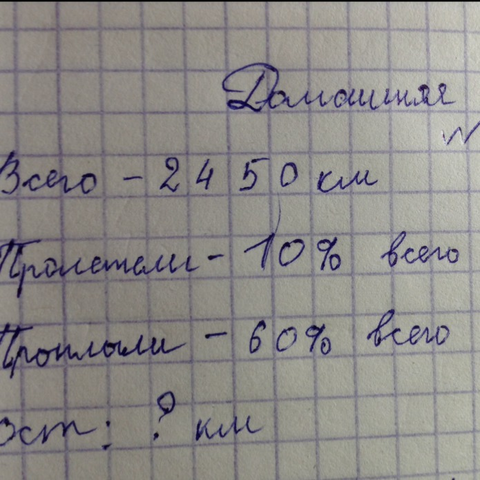 Домашняя
№
Всего - 2450 км
Пролетели - 10% всего
Проплыли - 60% всего
Ост: ? км